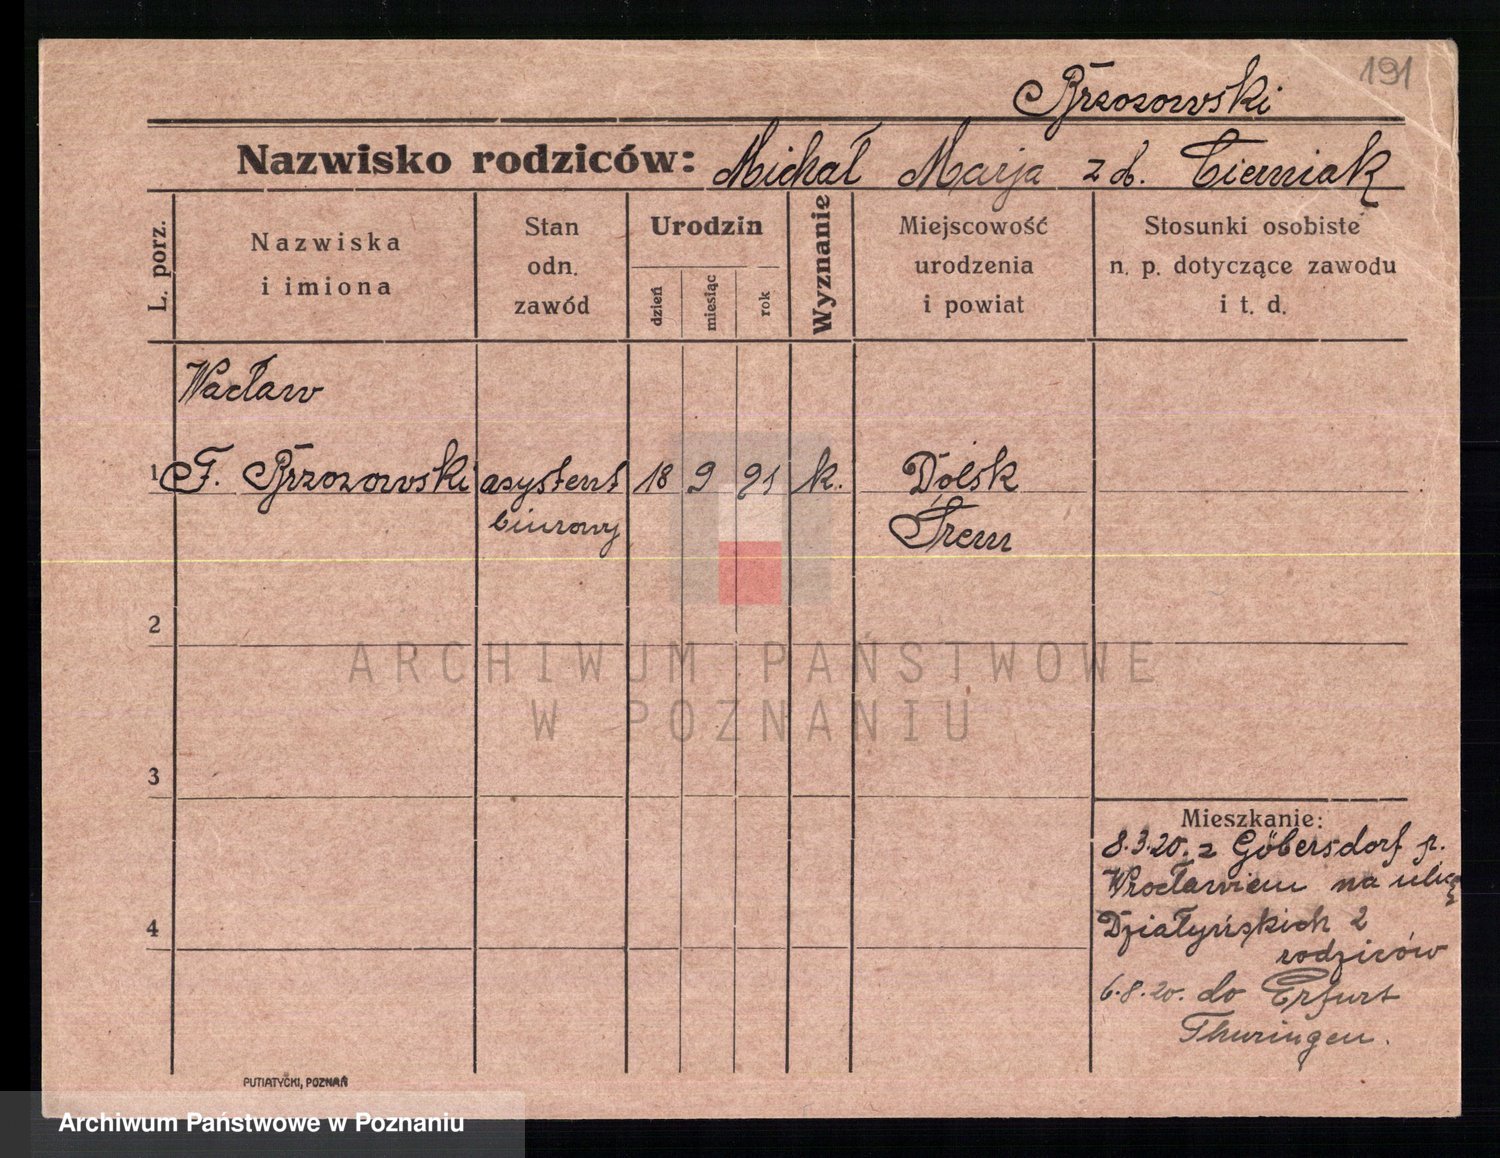 191
Brzozowski
Nazwisko rodziców: Michał Marja z d. Cierniak
L. porz.
Nazwiska
i imiona
Stan
odn.
zawód
Urodzin
dzień
miesiąc
rok
Wyznanie
Miejscowość
urodzenia
i powiat
Stosunki osobiste
n. p. dotyczące zawodu
i t. d.
Wacław
1 F. Brzozowski asystent 18 9 91 k. Dolsk
biurowy Śrem
2
ARCHIWUM PAŃSTWOWE
W POZNANIU
3
Mieszkanie:
8.3.20. z Göbersdorf p.
Wrocławiem na ulicę
4
Działyńskich 2
rodziców
6.8.20. do Erfurt
Thuringen.
PUTIATYCKI, POZNAŃ
Archiwum Państwowe w Poznaniu